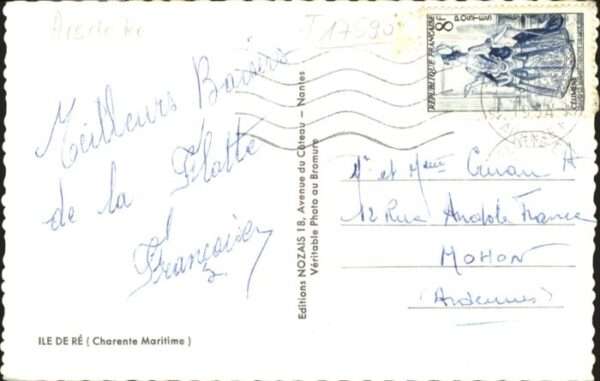 T 17590
Meilleurs Baisers
de la Flotte
Françoise
ILE DE RÉ ( Charente Maritime )
Editions NOZAIS 18, Avenue du Côteau — Nantes
Véritable Photo au Bromure
REPUBLIQUE FRANÇAISE
8F
POSTES
CELIMENE
Mr et Mme
12 Rue Anatole France
MOHON
(Ardennes)